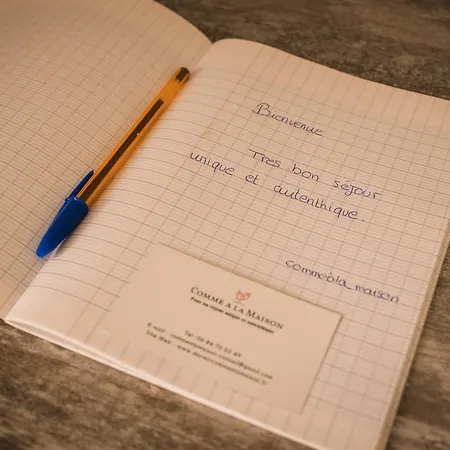 Bienvenue
Tres bon séjour
unique et autenthique.
comme à la maison
COMME A LA MAISON
Pour un séjour unique et authentique
Tel:
E-mail :
Site Web :